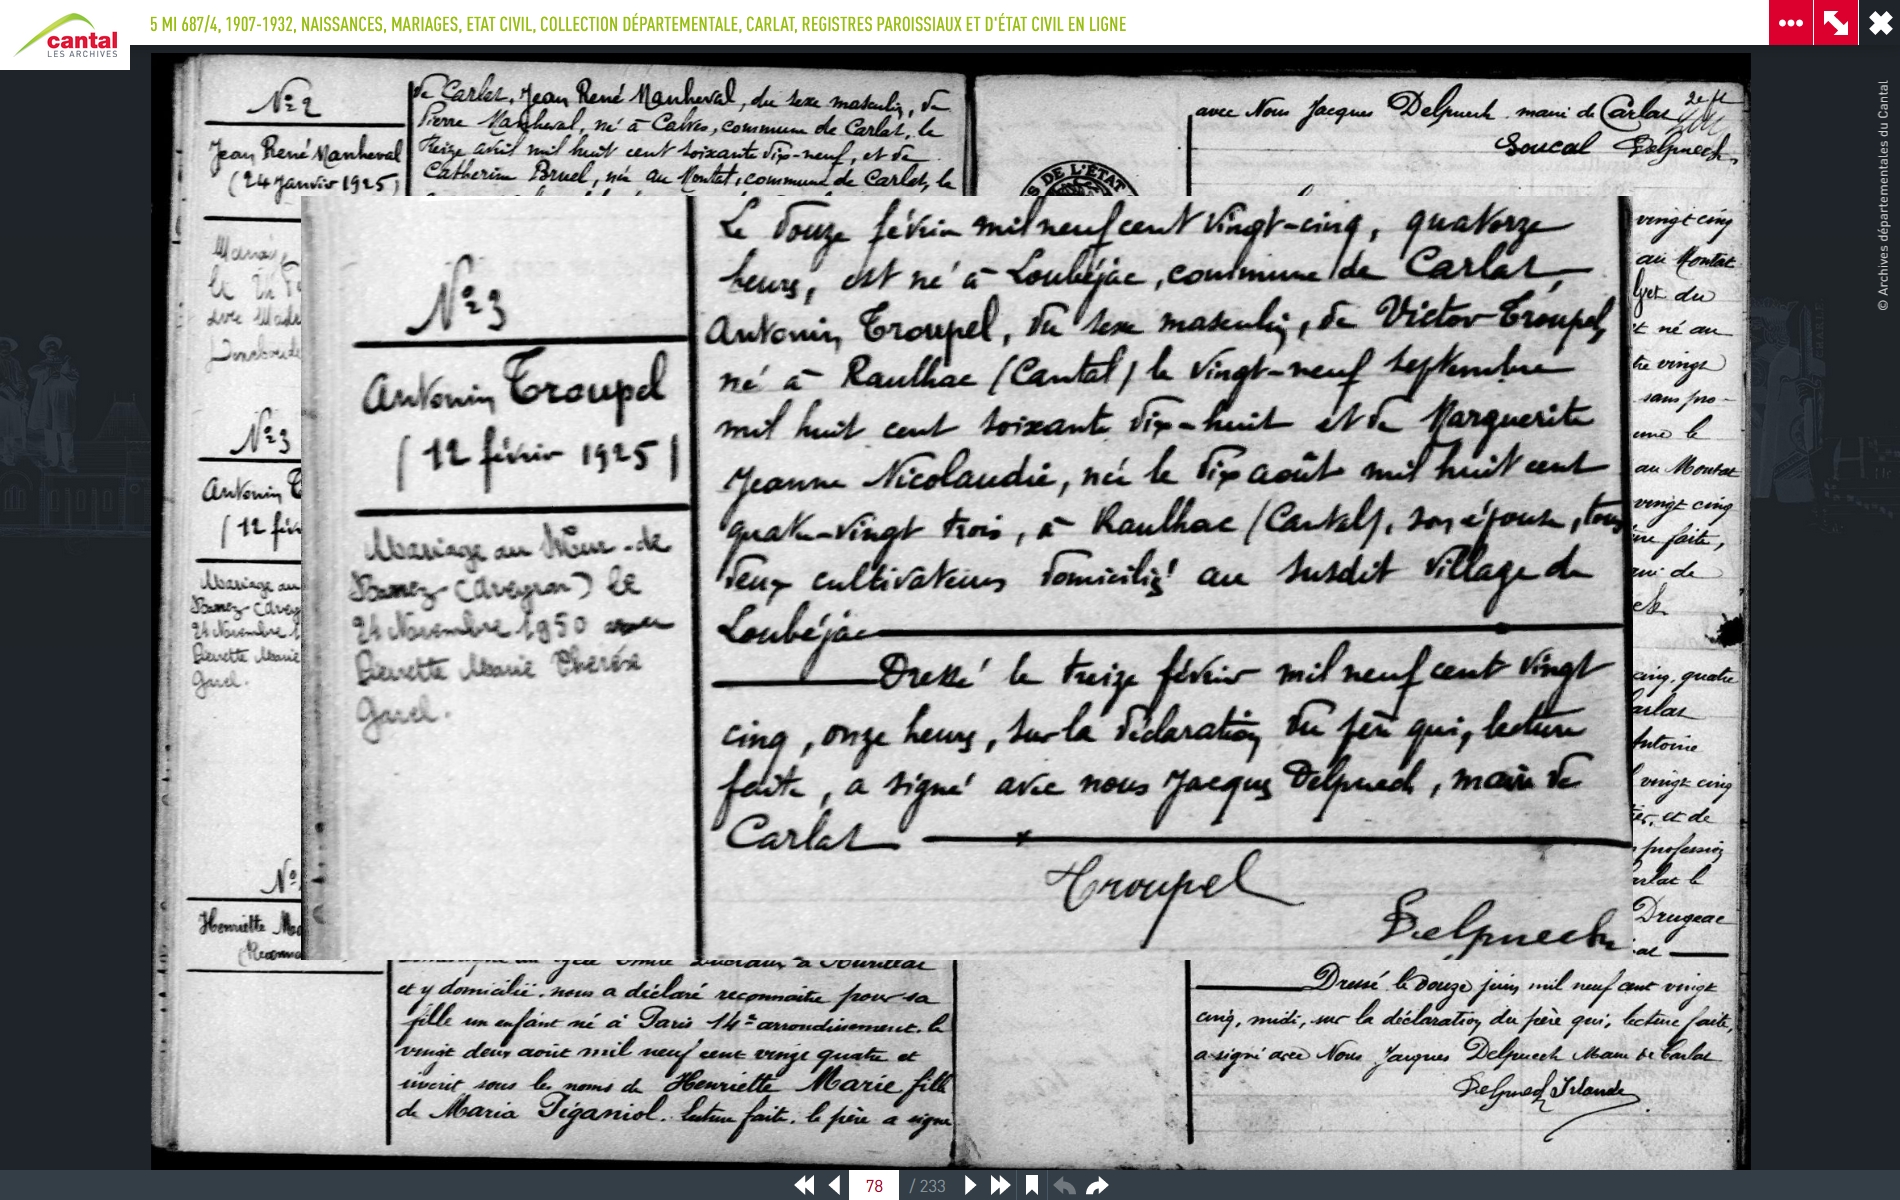 cantal
LES ARCHIVES
5 MI 687/4, 1907-1932, NAISSANCES, MARIAGES, ETAT CIVIL, COLLECTION DÉPARTEMENTALE, CARLAT, REGISTRES PAROISSIAUX ET D'ÉTAT CIVIL EN LIGNE
© Archives départementales du Cantal
N° 2
Jean René Manheval
(24 Janvier 1925)
de Carlat, Jean René Manheval, du sexe masculin, de
Pierre Manheval, né à Calves, commune de Carlat, le
treize avril mil huit cent soixante dix-neuf, et de
Catherine Bruel, née au Montat, commune de Carlat, le
avec Nous Jacques Delpuech maire de Carlat
Soucal Delpuech
DE L'ÉTAT
N° 3
Antonin Troupel
(12 février 1925)
Mariage au Mur-de
Barrez (Aveyron) le
24 Novembre 1950 avec
Pierrette Marie Thérèse
Garel.
Le douze février mil neuf cent vingt-cinq, quatorze
heures, est né à Loubéjac, commune de Carlat,
Antonin Troupel, du sexe masculin, de Victor Troupel,
né à Raulhac (Cantal) le vingt-neuf septembre
mil huit cent soixante dix-huit et de Marguerite
Jeanne Nicolaudie, née le dix août mil huit cent
quatre-vingt trois, à Raulhac (Cantal), son épouse, tous
deux cultivateurs domiciliés au susdit village de
Loubéjac
Dressé le treize février mil neuf cent vingt
cinq, onze heures, sur la déclaration du père qui, lecture
faite, a signé avec nous Jacques Delpuech, maire de
Carlat
Troupel
Delpuech
N° 3
Antonin
(12 fév
Mariage au
Barrez (Avey
24 Novembre 1
Pierrette Marie
Garel.
N°
Henriette
vingt cinq
au Montat
et du
né au
vingt
sans pro-
le
au Montat
vingt cinq
faite,
de
cinq, quatre
Antoine
vingt cinq
et de
profession
le
Drugeac
et y domicilié, nous a déclaré reconnaître pour sa
fille un enfant né à Paris 14e arrondissement, le
vingt deux août mil neuf cent vingt quatre et
inscrit sous les noms de Henriette Marie fille
de Maria Piganiol. lecture faite, le père a signé
Dressé le douze juin mil neuf cent vingt
cinq, midi, sur la déclaration du père qui, lecture faite,
a signé avec Nous Jacques Delpuech Maire de Carlat
Delpuech
78 / 233